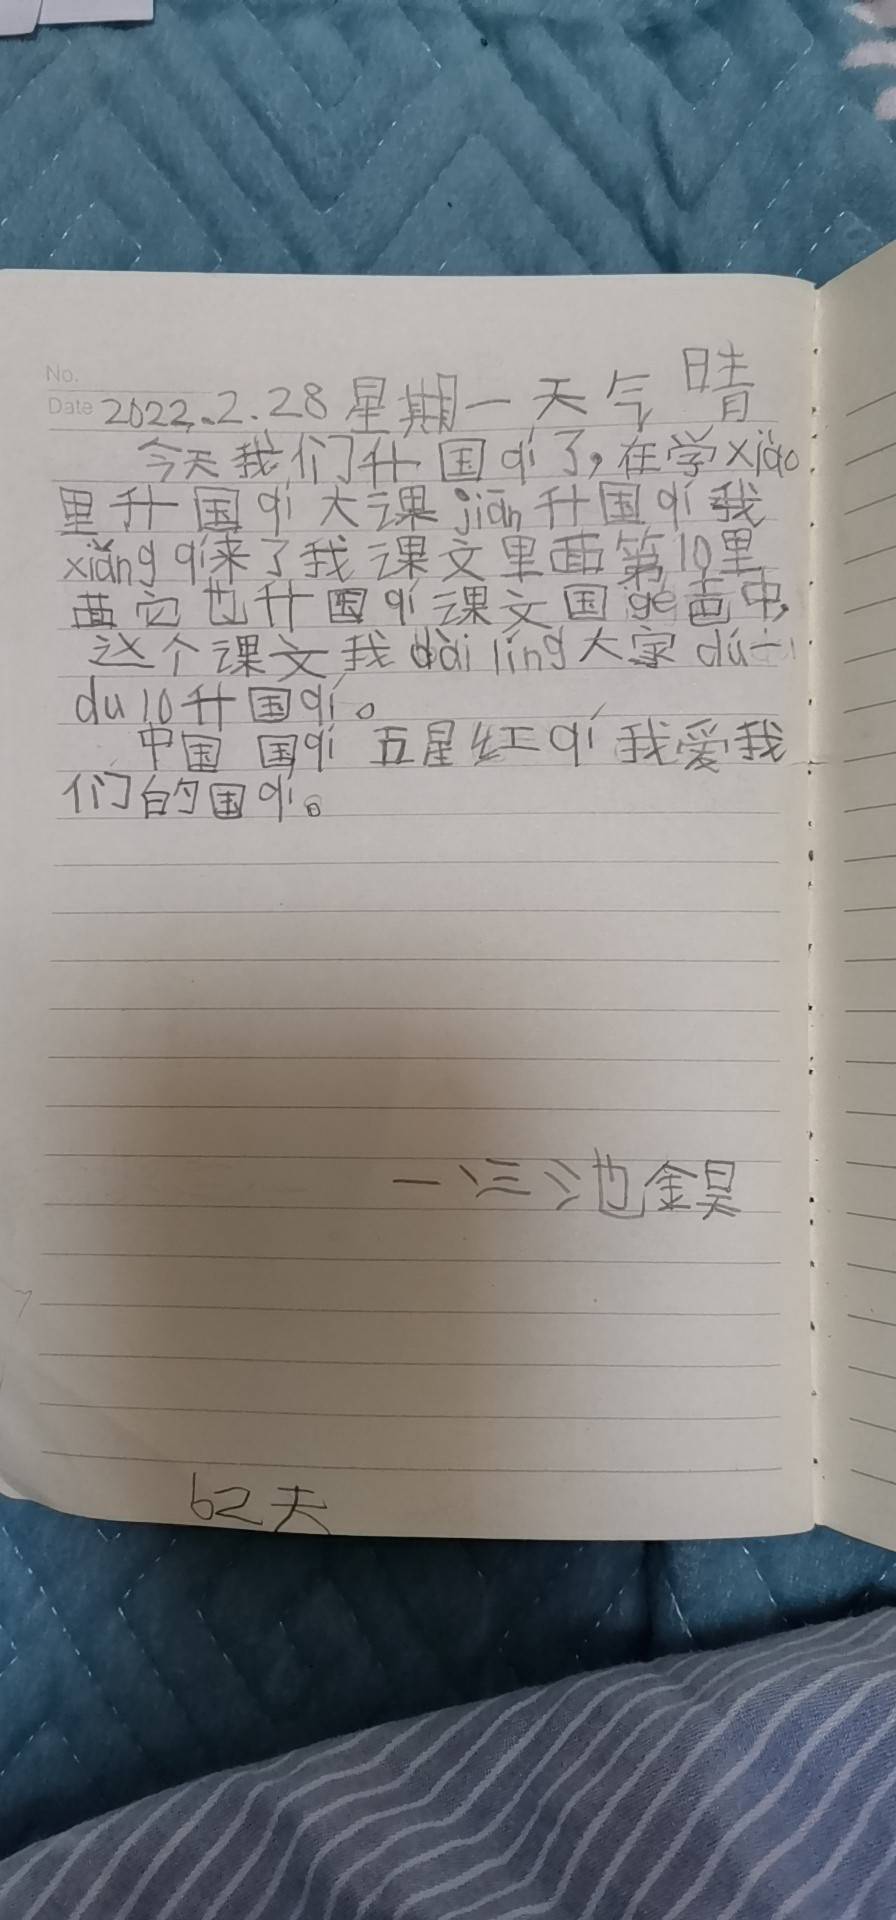 No.
Date 2022.2.28 星期一天气 晴
今天我们升国qí了,在学xiào
里升国qí大课jiān升国qí我
xiǎng qǐ来了我课文里面第10里
面它也升国qí课文国gē声中,
这个课文我dài lǐng大家dú一
du 10升国qí。
中国 国qí 五星红qí 我爱我
们的国qí。
一 三 池金昊
62天